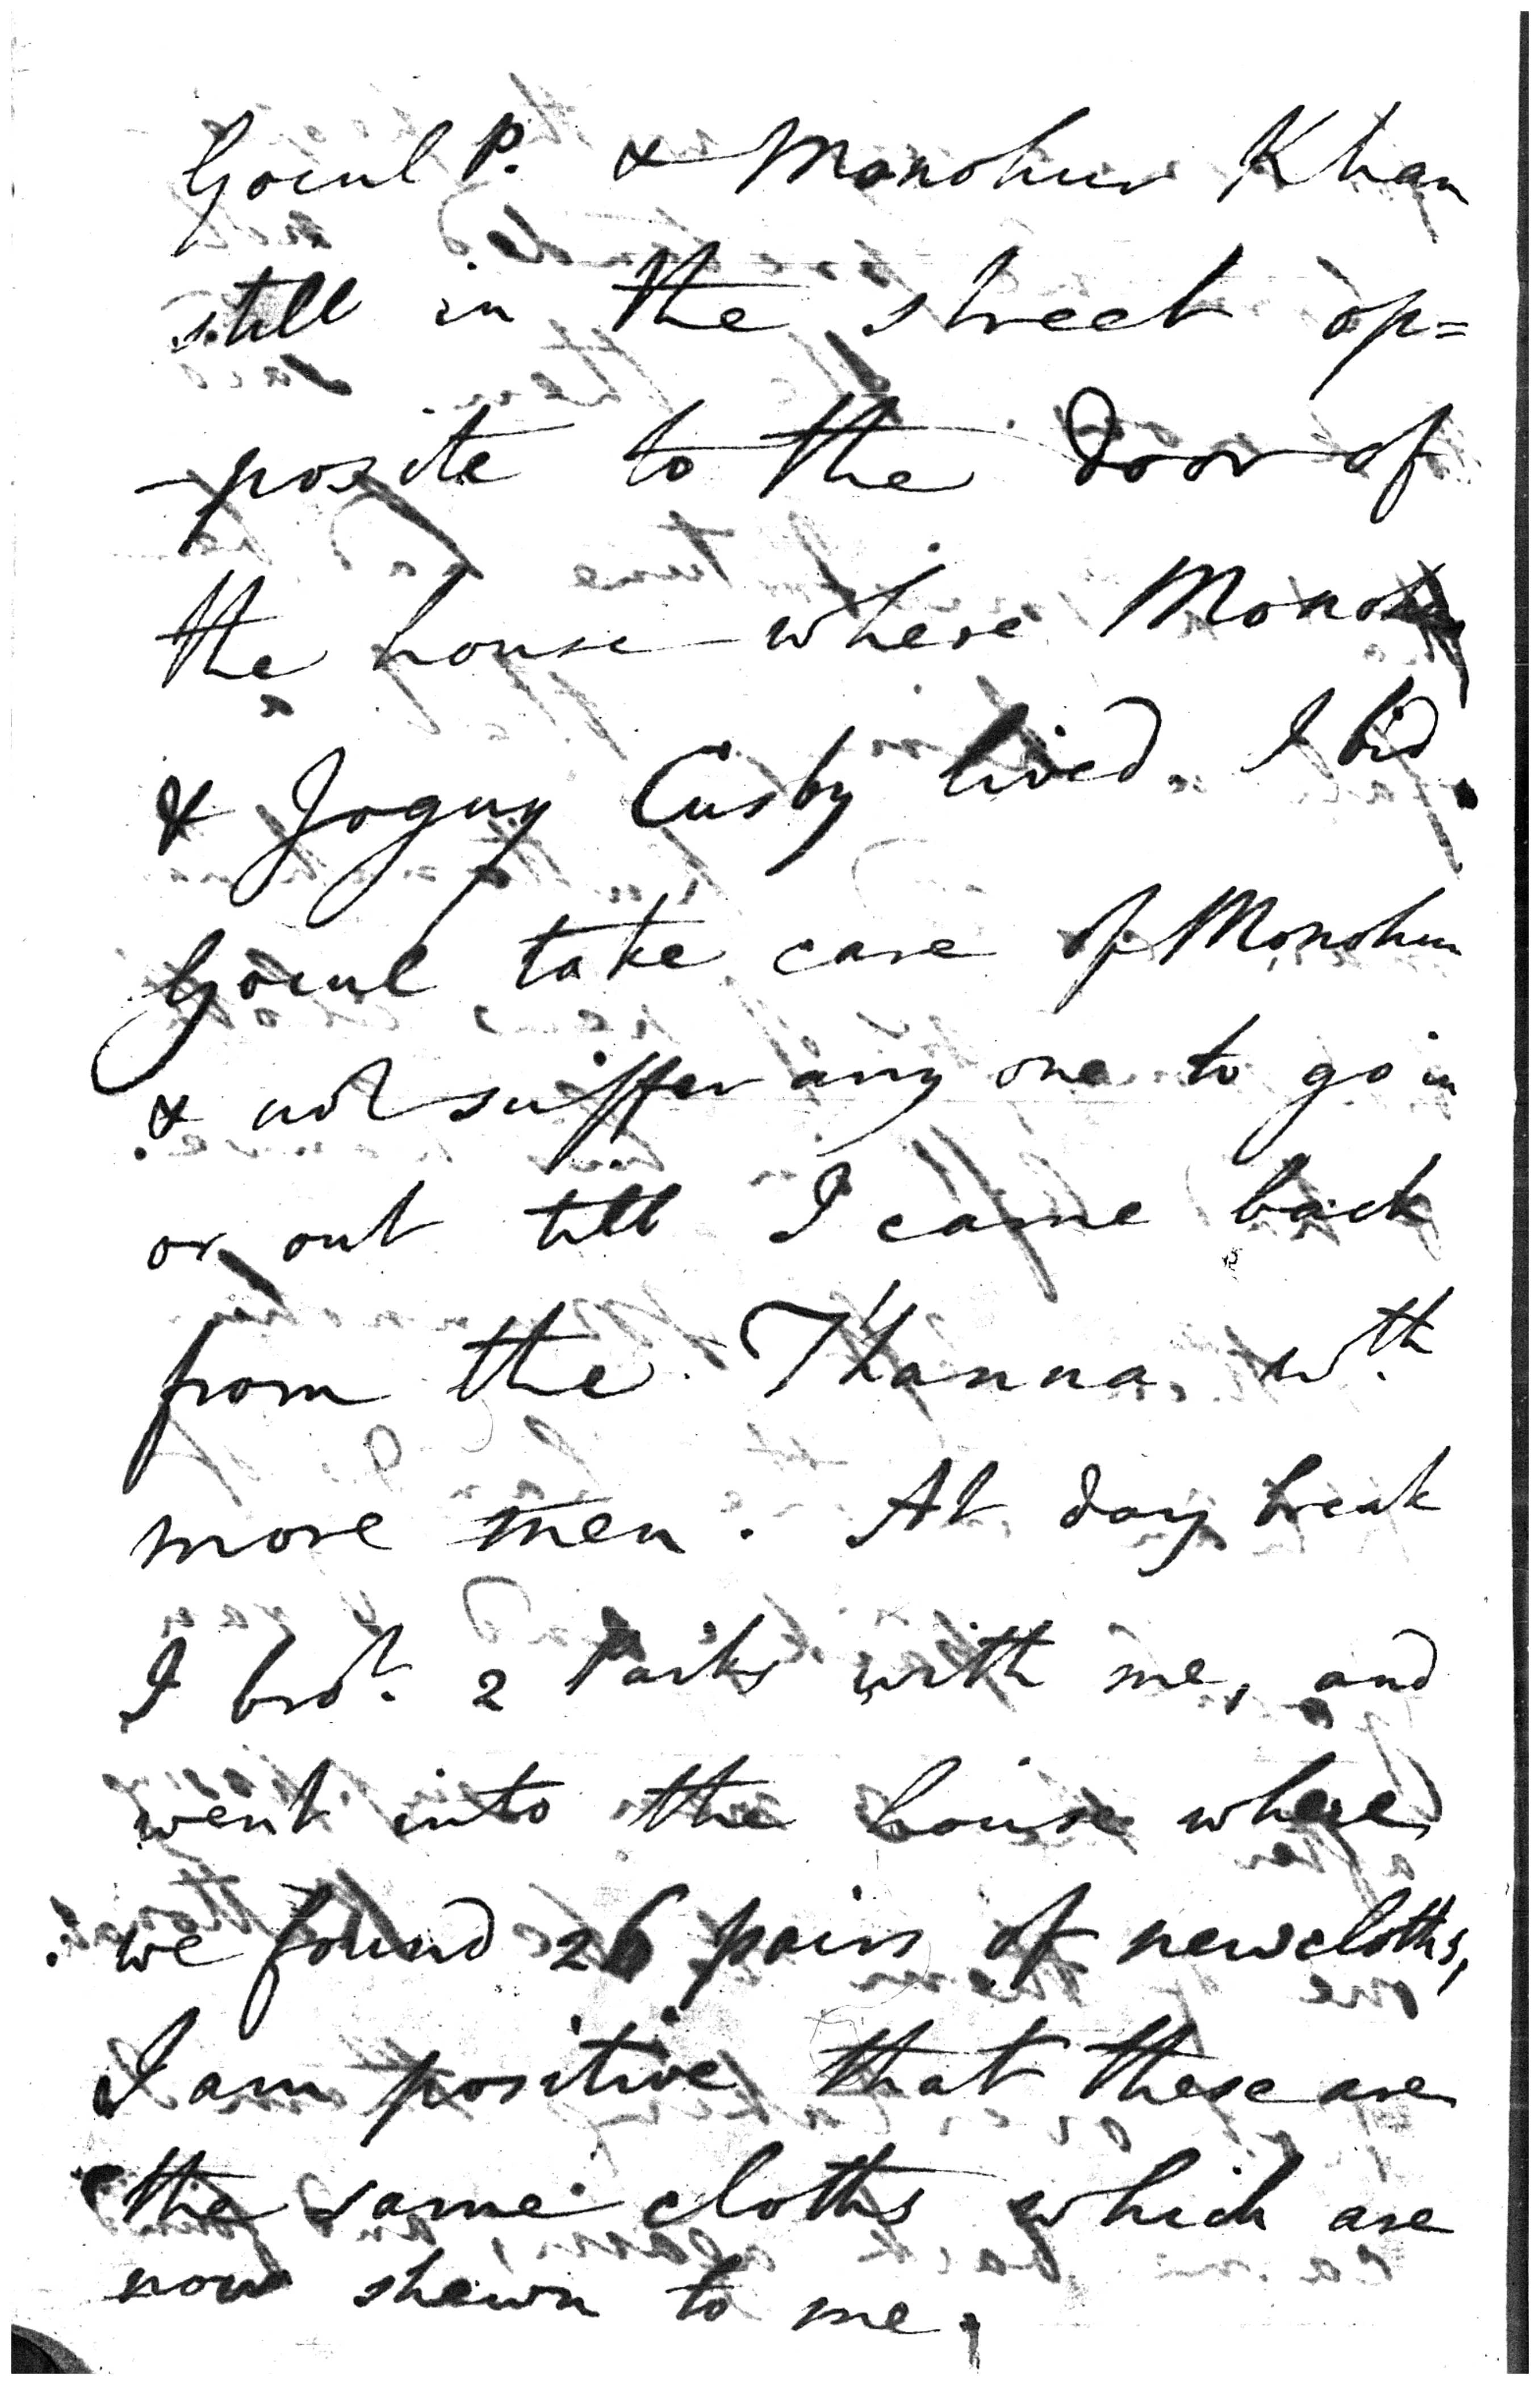 Gocul P. & Manohur Khan
still in the street op=
-posite to the door of
the house where Monohur
& Joguy Cusby lived. I bid
Gocul take care of Monohur
& not suffer any one to go in
or out till I came back
from the Thanna wth.
more men. At day break
I brot. 2 Paiks with me, and
went into the house where
we found 26 pairs of new cloths,
I am positive that these are
the same cloths which are
now shewn to me.